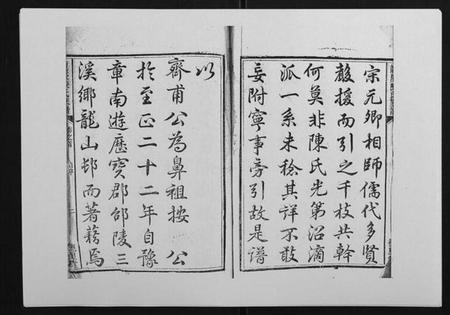 宗元卿相師儒代多賢
穀援而引之千枝共幹
何莫非陳氏光第沿滴
派一系未稔其詳不敢
妄附寧事旁引故是譜
以
齊甫公為鼻祖按 公
於至正二十二年自豫
章南遊歷寶郡邵陵三
溪鄉龍山邨而著藉焉